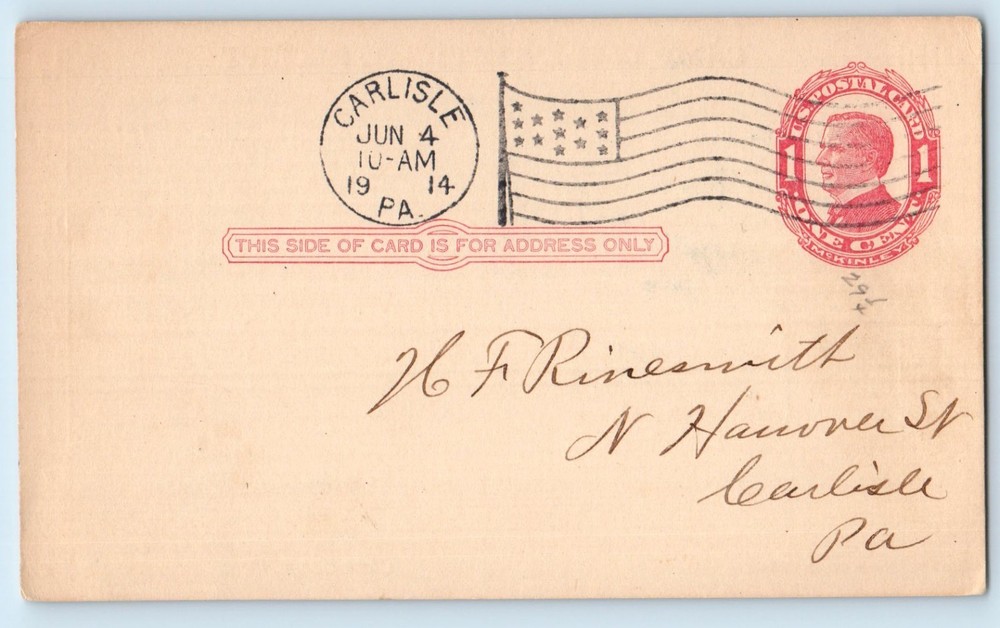 CARLISLE
JUN 4
10-AM
19 14
PA.
U.S. POSTAL CARD
1 1
ONE CENT
McKINLEY
THIS SIDE OF CARD IS FOR ADDRESS ONLY
29 1/4
H F Rinesmith
N Hanover St
Carlisle
Pa